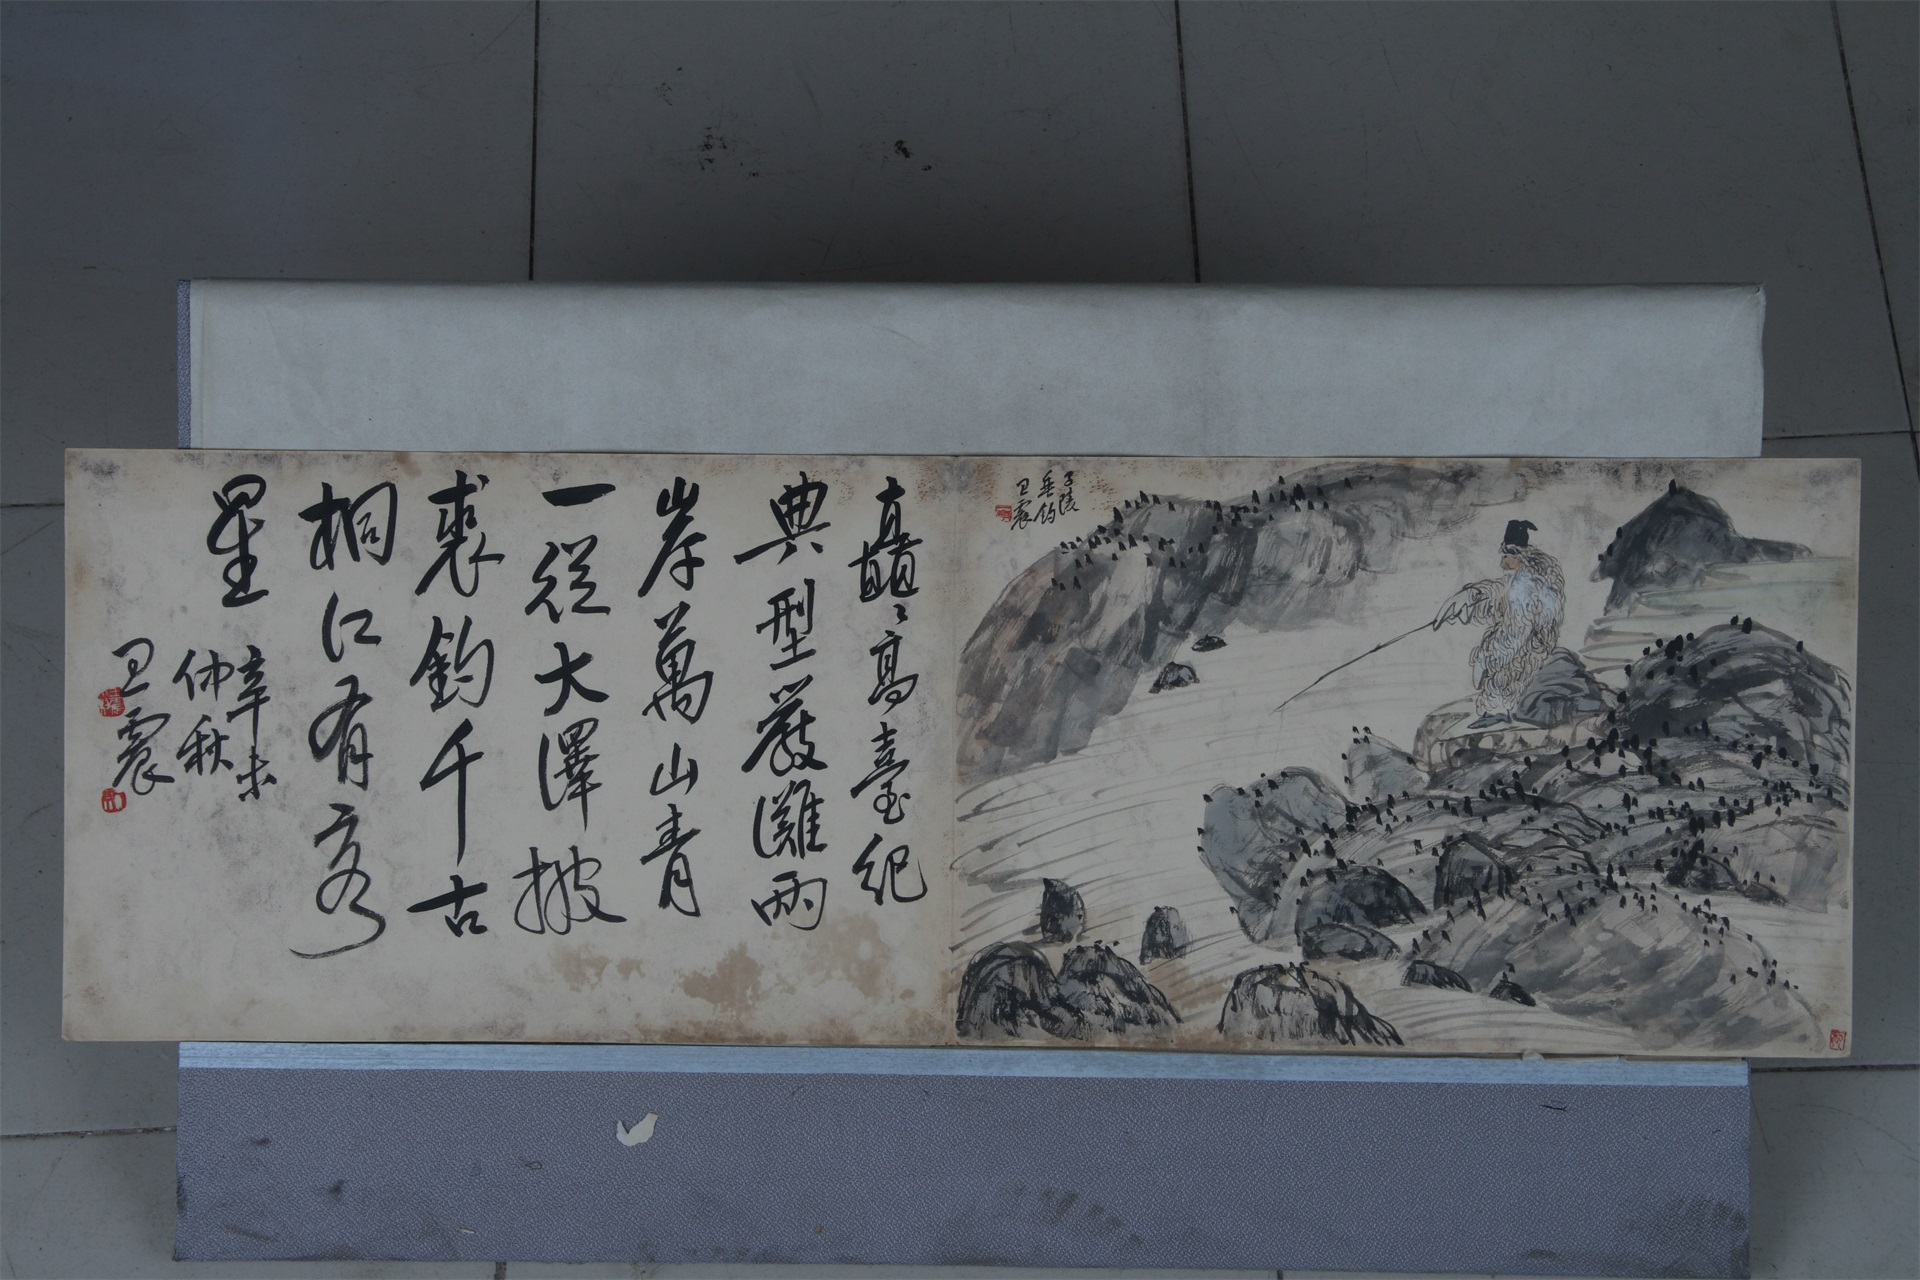 子陵
垂钓
卫震
矗々高臺紀
典型嚴灘兩
岸萬山青
一從大澤披
裘鈞千古
桐江有客
星
辛未
仲秋
卫震